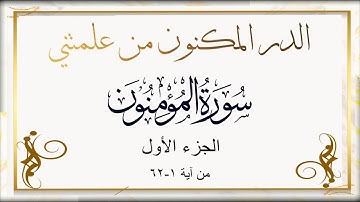 الدر المكنون من علمتني
سُورَةُ الْمُؤْمِنُونَ
الجزء الأول
من آية ١-٦٢